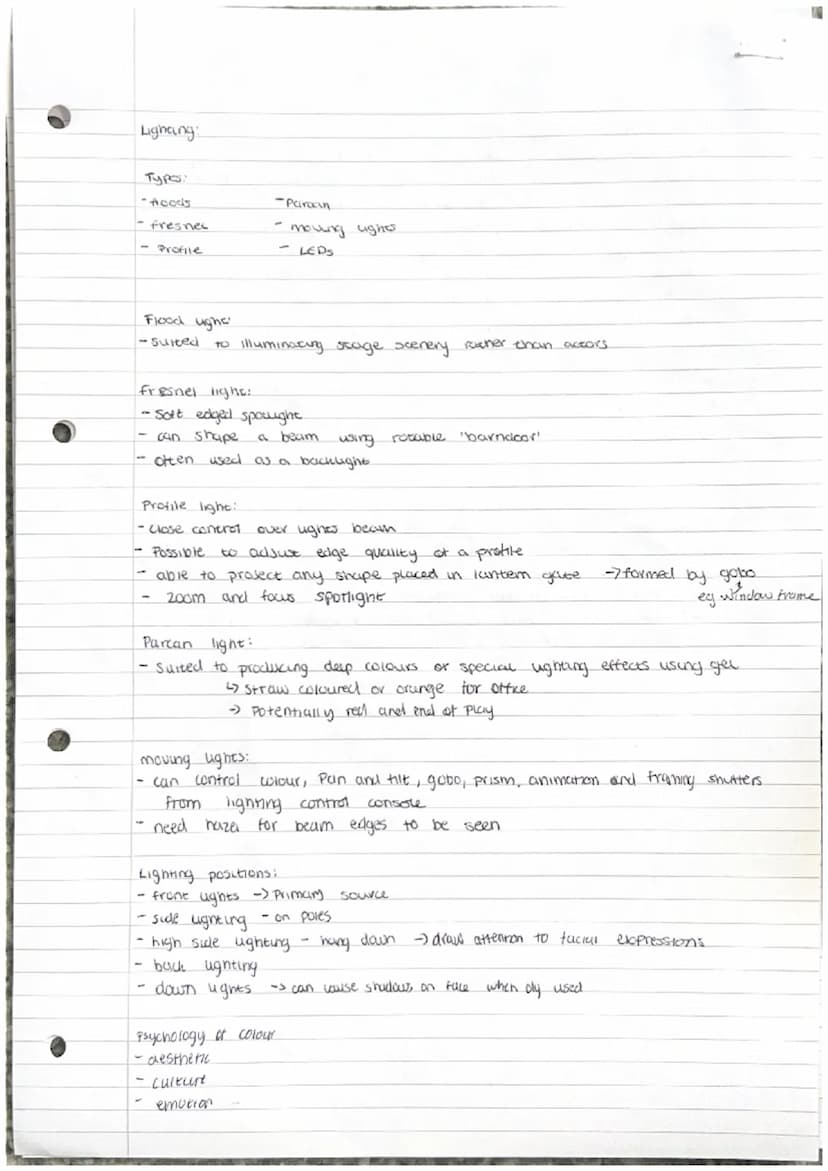 Lighting:
Types:
- floods - Parcan
- fresnel - moving lights
- Profile - LEDs
Flood light:
- suited to illuminating stage scenery rather than actors
fresnel light:
- Soft edged spotlight
- can shape a beam using rotable "barndoor"
- often used as a backlight
Profile light:
- close control over lights beam
- Possible to adjust edge quality of a profile
- able to project any shape placed in lantern gate → formed by gobo
- zoom and focus spotlight eg window frame
Parcan light:
- suited to producing deep colours or special lighting effects using gel
↳ straw coloured or orange for office
→ Potentially red and end of play
moving lights:
- can control colour, Pan and tilt, gobo, prism, animation and framing shutters
from lighting control console
- need haze for beam edges to be seen
Lighting positions:
- front lights → Primary source
- side lighting - on poles
- high side lighting - hang down → draw attention to facial expressions
- back lighting
- down lights → can cause shadows on face when oly used
Psychology of colour
- aesthetic
- culture
- emotion